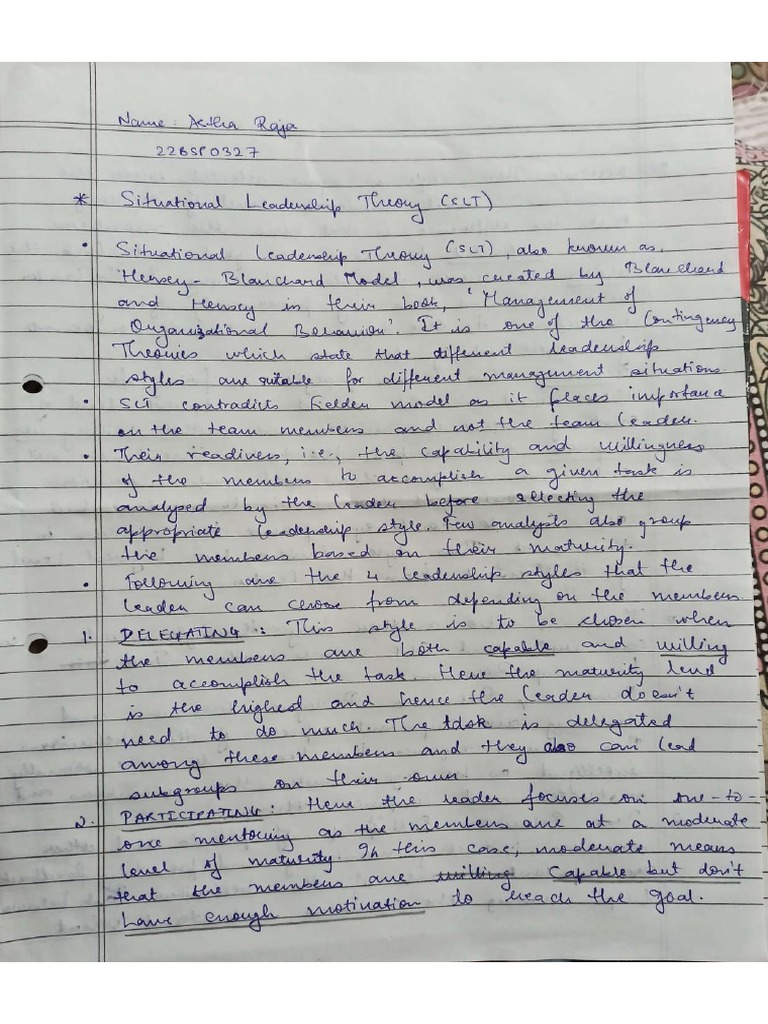 Name: Astha Raja
22BSP0327
* Situational Leadership Theory (SLT)
• Situational Leadership Theory (SLT), also known as
Hersey-Blanchard Model, was created by Blanchard
and Hersey in their book, 'Management of
Organizational Behavior'. It is one of the Contingency
Theories which state that different leadership
styles are suitable for different management situations.
• SLT contradicts Fielder model as it places importance
on the team members and not the team leader.
• Their readiness, i.e., the capability and willingness
of the members to accomplish a given task is
analysed by the leader before selecting the
appropriate leadership style. Few analysts also group
the members based on their maturity.
• Following are the 4 leadership styles that the
leader can choose from depending on the members.
1. DELEGATING: This style is to be chosen when
the members are both capable and willing
to accomplish the task. Here the maturity level
is the highest and hence the leader doesn't
need to do much. The task is delegated
among these members and they also can lead
subgroups on their own.
2. PARTICIPATING: Here the leader focuses on one-to-
one mentoring as the members are at a moderate
level of maturity. In this case, moderate means
that the members are willing capable but don't
have enough motivation to reach the goal.